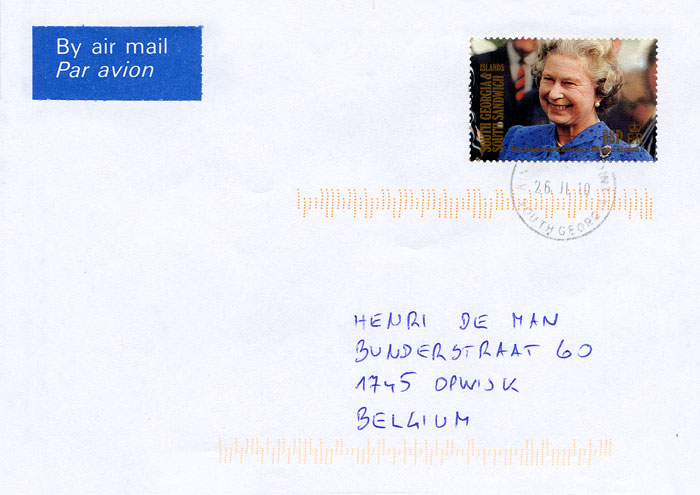 By air mail
Par avion
SOUTH GEORGIA &
SOUTH SANDWICH
ISLANDS
26 JL 10
SOUTH GEORGIA
HENRI DE MAN
BUNDERSTRAAT 60
1745 OPWIJK
BELGIUM